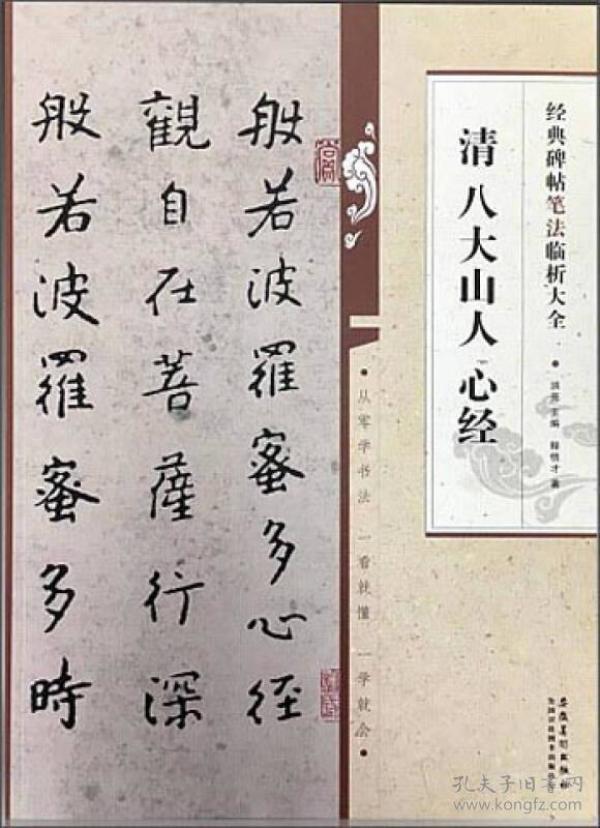 经典碑帖笔法临析大全
清 八大山人 心经
洪亮 主编
从零学书法 一看就懂 一学就会
般若波羅蜜多心径
觀自在菩薩行深
般若波羅蜜多時
安徽美術出版社
全国百佳图书出版单位
孔夫子旧书网
www.kongfz.com